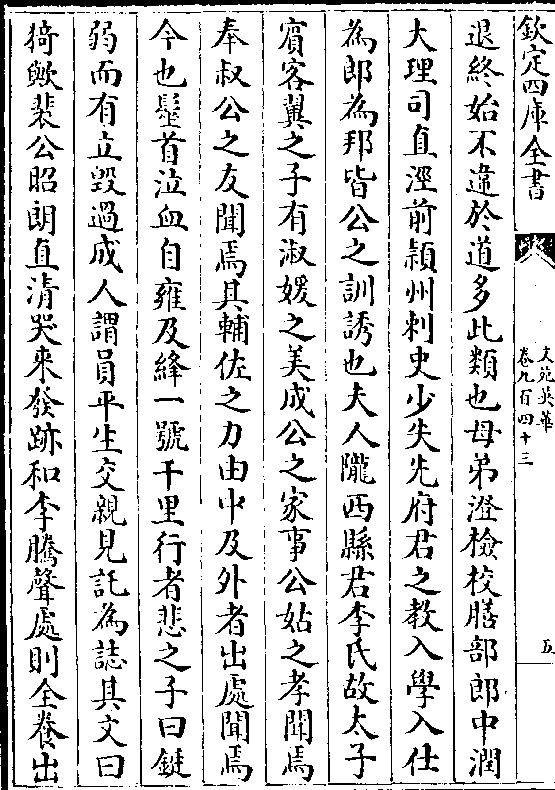 欽定四庫全書
文苑英華
卷九百四十三
五
退終始不違於道多此類也母弟澄檢校膳部郎中潤
大理司直溼前潁州刺史少失先府君之教入學入仕
為郎為邦皆公之訓誘也夫人隴西縣君李氏故太子
賓客翼之子有淑媛之美成公之家事公姑之孝聞焉
奉叔公之友聞焉其輔佐之力由中及外者出處聞焉
今也髽首泣血自雍及絳一號千里行者悲之子曰鍵
弱而有立毀過成人謂員平生交親見託為誌其文曰
猗歟裴公昭朗直清哭來發跡和李騰聲處則全養出